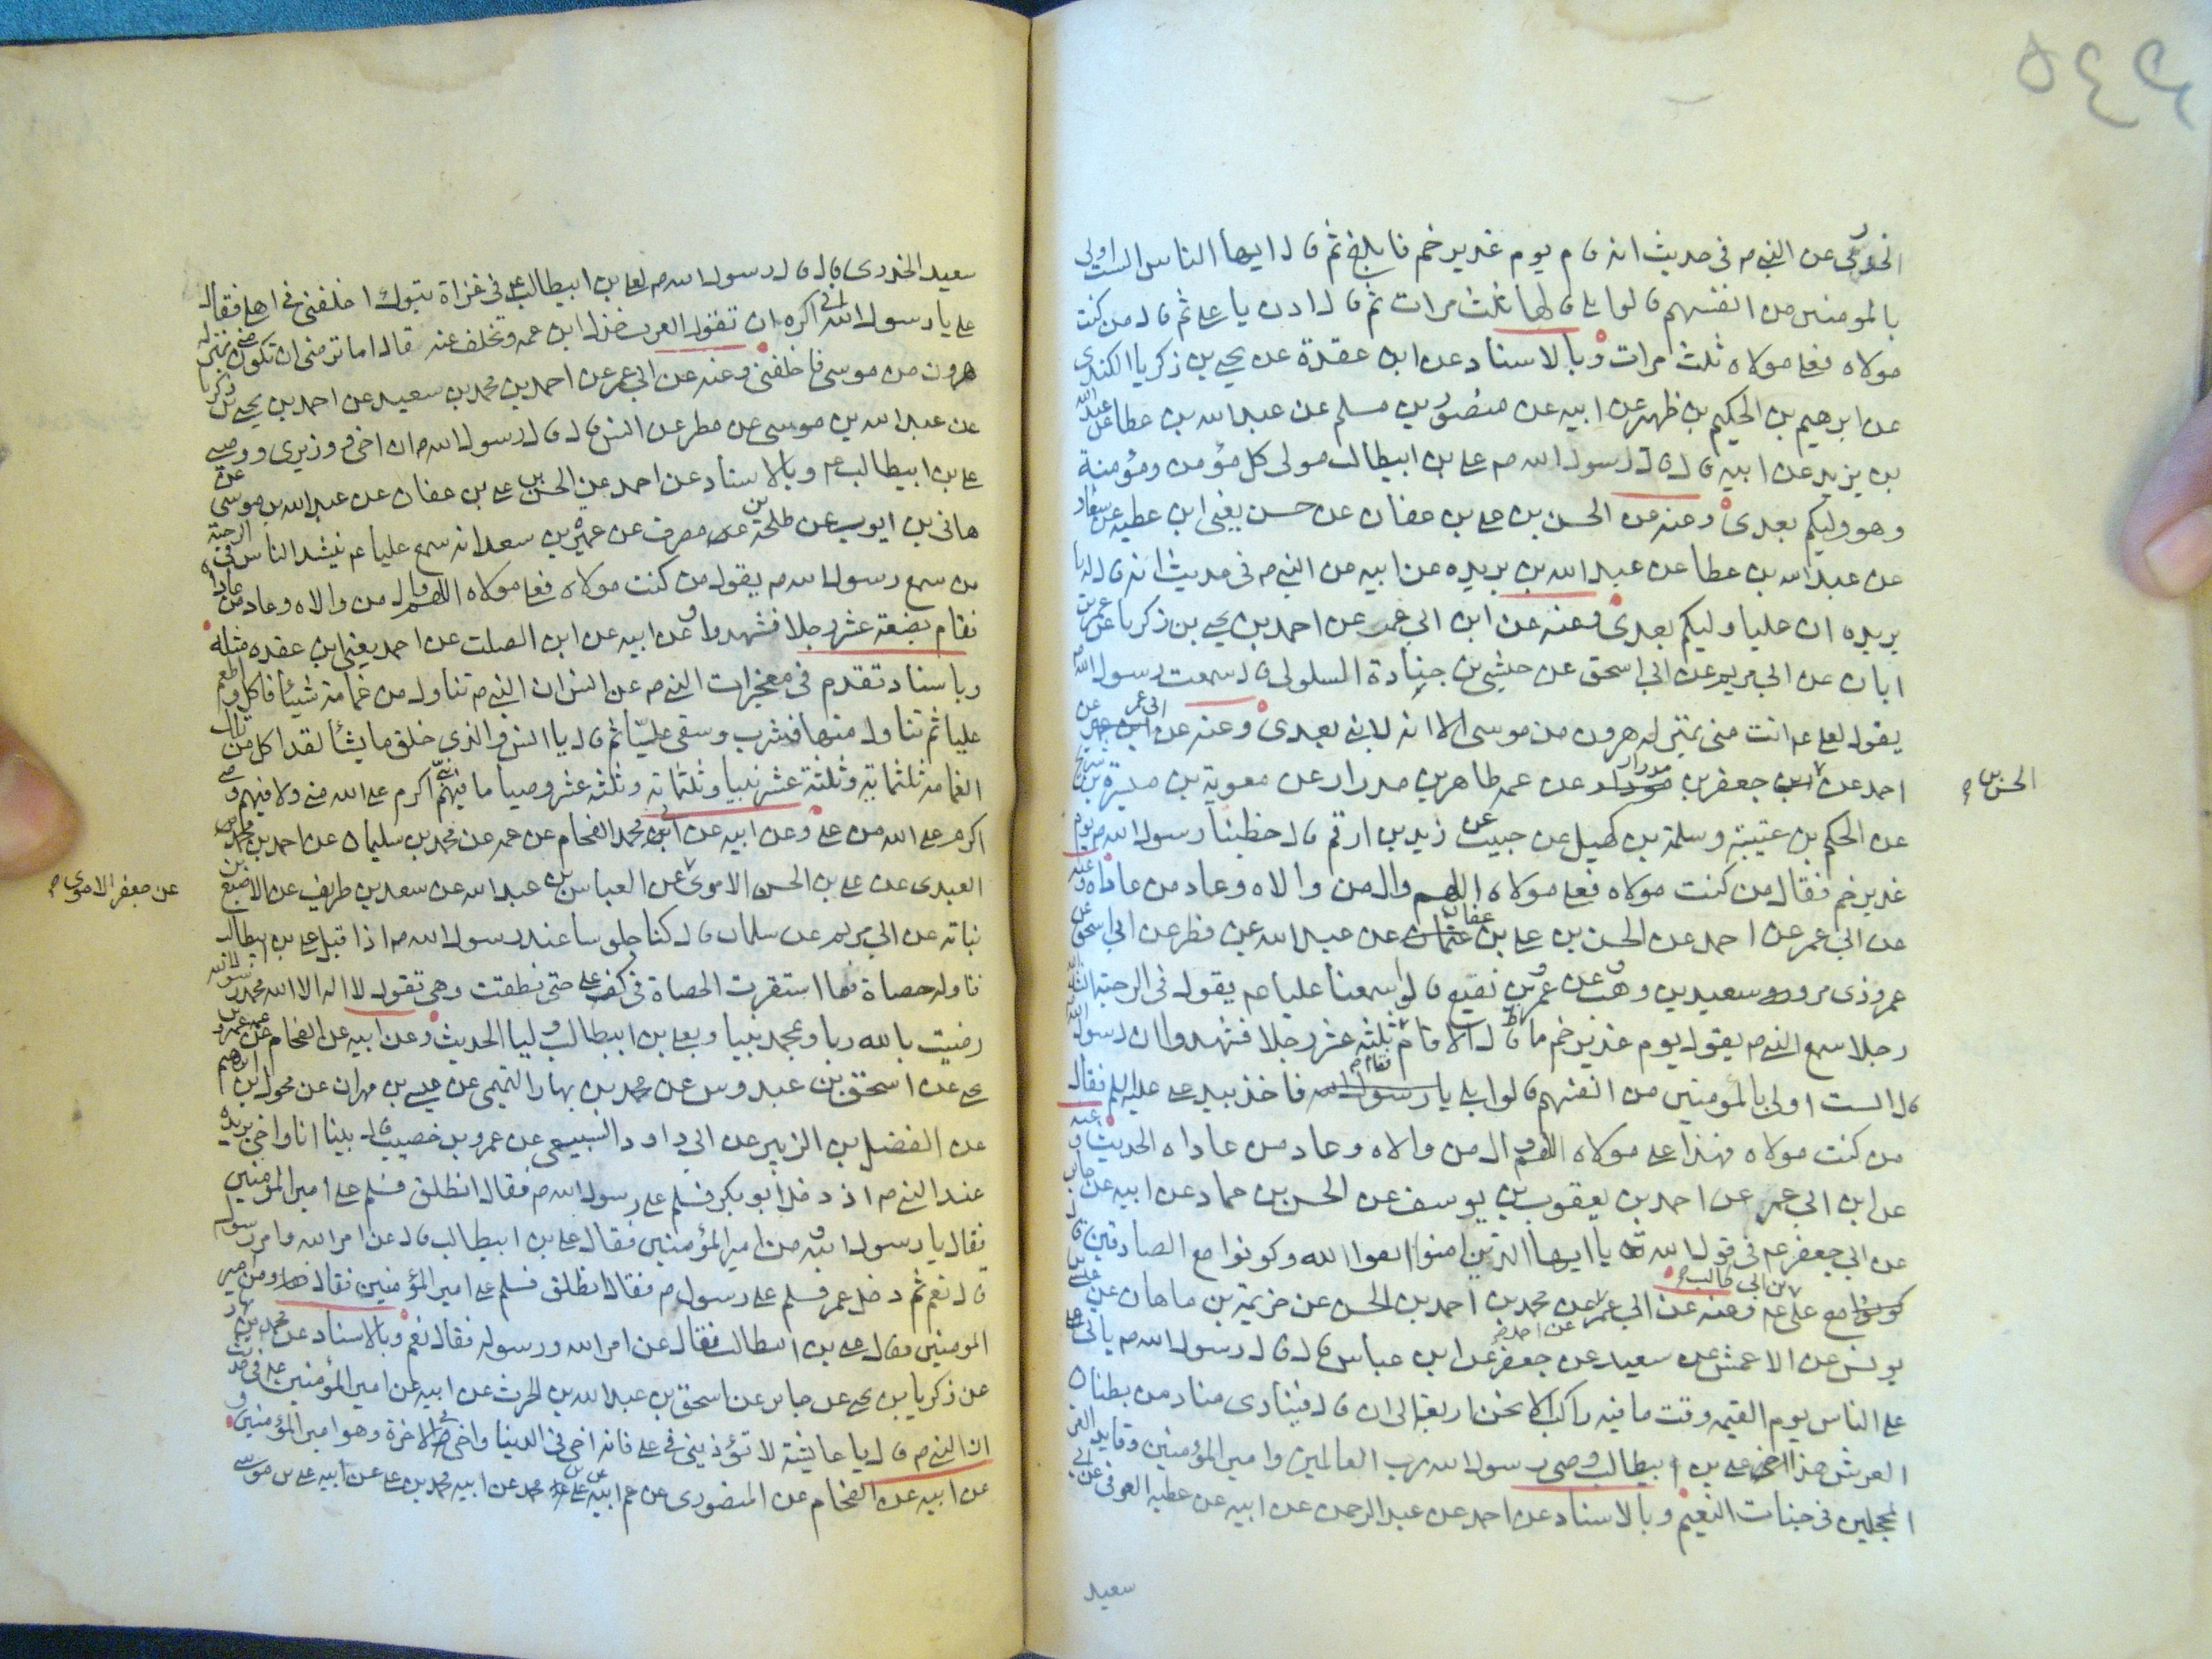 ٥٤٩
الخدري عن النبي ص في حديث انه قام يوم غدير خم فابلغ ثم قال ايها الناس الست اولى
بالمومنين من انفسهم قالوا بلى قالها ثلث مرات ثم قال ادن يا علي ثم قال من كنت
مولاه فعلي مولاه ثلث مرات وبالاسناد عن ابن عقدة عن يحيى بن زكريا الكندي
عن ابرهيم بن الحكيم بن ظهير عن ابيه عن منصور بن مسلم عن عبد الله بن عطا عن عبد الله
بن يزيد عن ابيه قال قال رسول الله ص علي بن ابيطالب مولى كل مؤمن ومؤمنة
وهو وليكم بعدي وعنه عن الحسن بن علي بن عفان عن حسن يعني ابن عطيه عن سعاد
عن عبد الله بن عطا عن عبد الله بن بريده عن ابيه عن النبي ص في حديث انه قال يا
بريده ان عليا وليكم بعدي وعنه عن ابن ابي عمر عن احمد بن يحيى بن زكريا عن عمر بن
ابان عن ابي مريم عن ابي اسحق عن حبشي بن جنادة السلولي قال سمعت رسول الله ص
يقول لعلي ع انت مني بمنزله هرون من موسى الا انه لا نبي بعدي وعنه عن ابي عمر عن
احمد عن الحسن بن جعفر بن مدرار عن عمه طاهر بن مدرار عن معوية بن ميسرة بن شريح
عن الحكم بن عتيبة وسلمة بن كهيل عن حبيب عن زيد بن ارقم قال خطبنا رسول الله ص يوم
غدير خم فقال من كنت مولاه فعلي مولاه اللهم وال من والاه وعاد من عاداه وعنه
عن ابي عمر عن احمد عن الحسن بن علي بن عفان عن عبد الله عن فطر عن ابي اسحق عن
عمرو ذي مر وسعيد بن وهب وعن عمرو بن نفيع قالوا سمعنا عليا ع يقول في الرحبة انشد الله
رجلا سمع النبي ص يقول يوم غدير خم ما قال الا قام فقام ثلثه عشر رجلا فشهدوا ان رسول الله
قال الست اولى بالمؤمنين من انفسهم قالوا بلى يا رسول الله فاخذ بيد علي عليه السلم فقال
من كنت مولاه فهذا علي مولاه اللهم وال من والاه وعاد من عاداه الحديث وعنه
عن ابن ابي عمر عن احمد بن يعقوب بن يوسف عن الحسن بن حماد عن ابيه عن جابر
عن ابي جعفر ع في قول الله تع يا ايها الذين امنوا اتقوا الله وكونوا مع الصادقين قال
مع علي بن ابي طالب ع وعنه عن ابي عمر عن محمد بن احمد بن الحسن عن خزيمة بن ماهان عن عيسى بن
يونس عن الاعمش عن سعيد عن جعفر عن ابن عباس قال قال رسول الله ص ياتي على
على الناس يوم القيمه وقت ما فيه راكب الا نحن اربعة الى ان قال فينادي مناد من بطنان
العرش هذا اخي علي بن ابيطالب وصي رسول الله رب العالمين وامير المؤمنين وقايد الغر
المحجلين في جنات النعيم وبالاسناد عن احمد عن عبد الرحمن عن ابيه عن عطيه العوفي عن ابي
سعيد
الحسن بن
سعيد الخدري قال قال رسول الله ص لعلي بن ابيطالب ع في غزاة تبوك اخلفني في اهلي فقال
علي يا رسول الله اني اكره ان تقول العرب خذل ابن عمه وتخلف عنه قال اما ترضى ان تكون مني بمنزله
هرون من موسى فاخلفني وعنه عن ابي عمر عن احمد بن محمد بن سعيد عن احمد بن يحيى بن زكريا
عن عبد الله بن موسى عن مطر عن انس قال قال رسول الله ص ان اخي ووزيري ووصيي
علي بن ابيطالب ع وبالاسناد عن احمد عن الحسن بن علي بن عفان عن عبد الله بن موسى عن
هاني بن ايوب عن طلحة بن مصرف عن عميرة بن سعد انه سمع عليا ع ينشد الناس في الرحبة
من سمع رسول الله ص يقول من كنت مولاه فعلي مولاه اللهم وال من والاه وعاد من عاداه
فقام بضعة عشر رجلا فشهدوا وعن ابيه عن ابن الصلت عن احمد يعني ابن عقده مثله
وباسناد تقدم في معجزات النبي ص عن انس ان النبي ص تناول من غمامة شيئا فاكل واطعم
عليا ثم تناول منها فشرب وسقى عليا ثم قال يا انس والذي خلق ما يشأ لقد اكل من تلك
الغمامة ثلثمائة وثلثة عشر نبيا وثلثمائة وثلثه عشر وصيا ما فيهم نبي اكرم على الله مني ولا فيهم وصي
اكرم على الله من علي وعن ابيه عن ابي محمد الفحام عن عمه عن محمد بن سليمان عن احمد بن محمد
العبدي عن علي بن الحسن الاموي عن العباس بن عبد الله عن سعد بن طريف عن الاصبغ بن
نباته عن ابي مريم عن سلمان قال كنا جلوسا عند رسول الله ص اذ اقبل علي بن ابيطالب
فناوله حصاة فما استقرت الحصاة في كف علي حتى نطقت وهي تقول لا اله الا الله محمد رسول الله
رضيت بالله ربا وبمحمد نبيا وبعلي بن ابيطالب وليا الحديث وعن ابيه عن الفحام عن عمه عمرو بن
يحيى عن اسحق بن عبدوس عن محمد بن بهار التميمي عن عيسى بن مهران عن مخول بن ابرهيم
عن الفضل بن الزبير عن ابي داود السبيعي عن عمرو بن خصيب قال بينا انا واخي بريده
عند النبي ص اذ دخل ابو بكر فسلم على رسول الله ص فقال انطلق فسلم على امير المؤمنين
فقال يا رسول الله ومن امير المؤمنين فقال علي بن ابيطالب قال عن امر الله وامر رسوله
قال نعم ثم دخل عمر فسلم على رسول ص فقال انطلق فسلم على امير المؤمنين فقال ومن امير
المومنين فقال علي بن ابيطالب فقال عن امر الله ورسوله فقال نعم وبالاسناد عن محمد بن
عن زكريا بن يحيى عن جابر عن اسحق بن عبد الله بن الحرث عن ابيه عن امير المؤمنين ع في حديث
ان النبي ص قال يا عايشة لا تؤذيني في علي فانه اخي في الدنيا واخي في الاخرة وهو امير المؤمنين
عن ابيه عن الفحام عن المنصوري عن عم ابيه عن علي بن محمد عن ابيه محمد بن علي عن ابيه علي بن موسى
عن جعفر الاموي